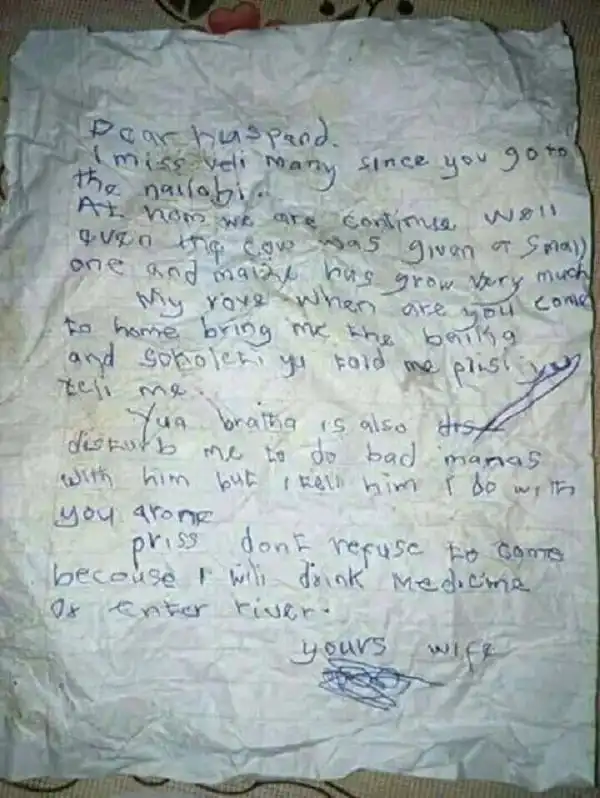 Dear huspand.
I miss veli many since you go to
the nailobi..
At hom we are continue well
even the cow was given a small
one and maize has grow very much
My rove when are you come
to home bring me the
and yu told me plisi
tell me.
Yua bratha is also dis
disturb me to do bad manas
with him but I tell him I do with
you arone
priss dont refuse to come
because I will drink medicine
or enter river.
yours wife